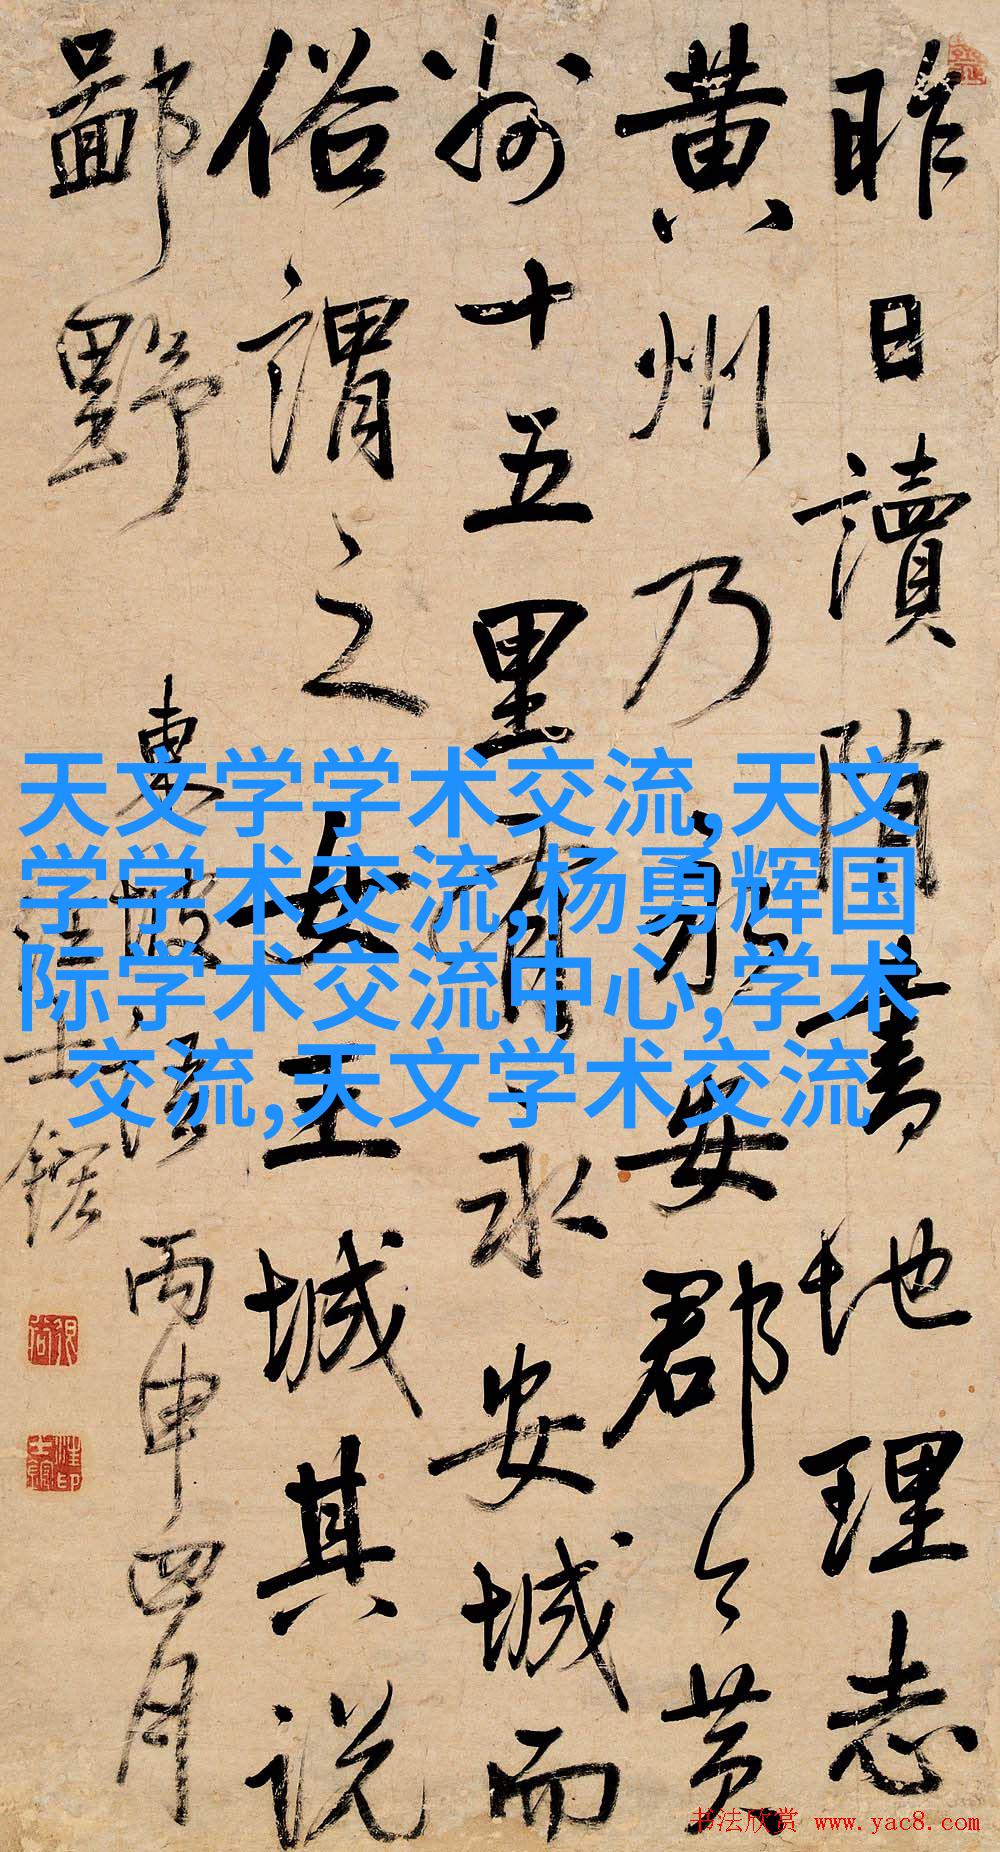 昨日讀隋書地理志
黄州乃永安郡今黄
州十五里有永安城而
俗謂之女王城其説
鄙野
東坡語 丙申四月
汪士鋐
天文学学术交流,天文
学学术交流,杨勇辉国
际学术交流中心,学术
交流,天文学术交流
书法欣赏 www.yac8.com